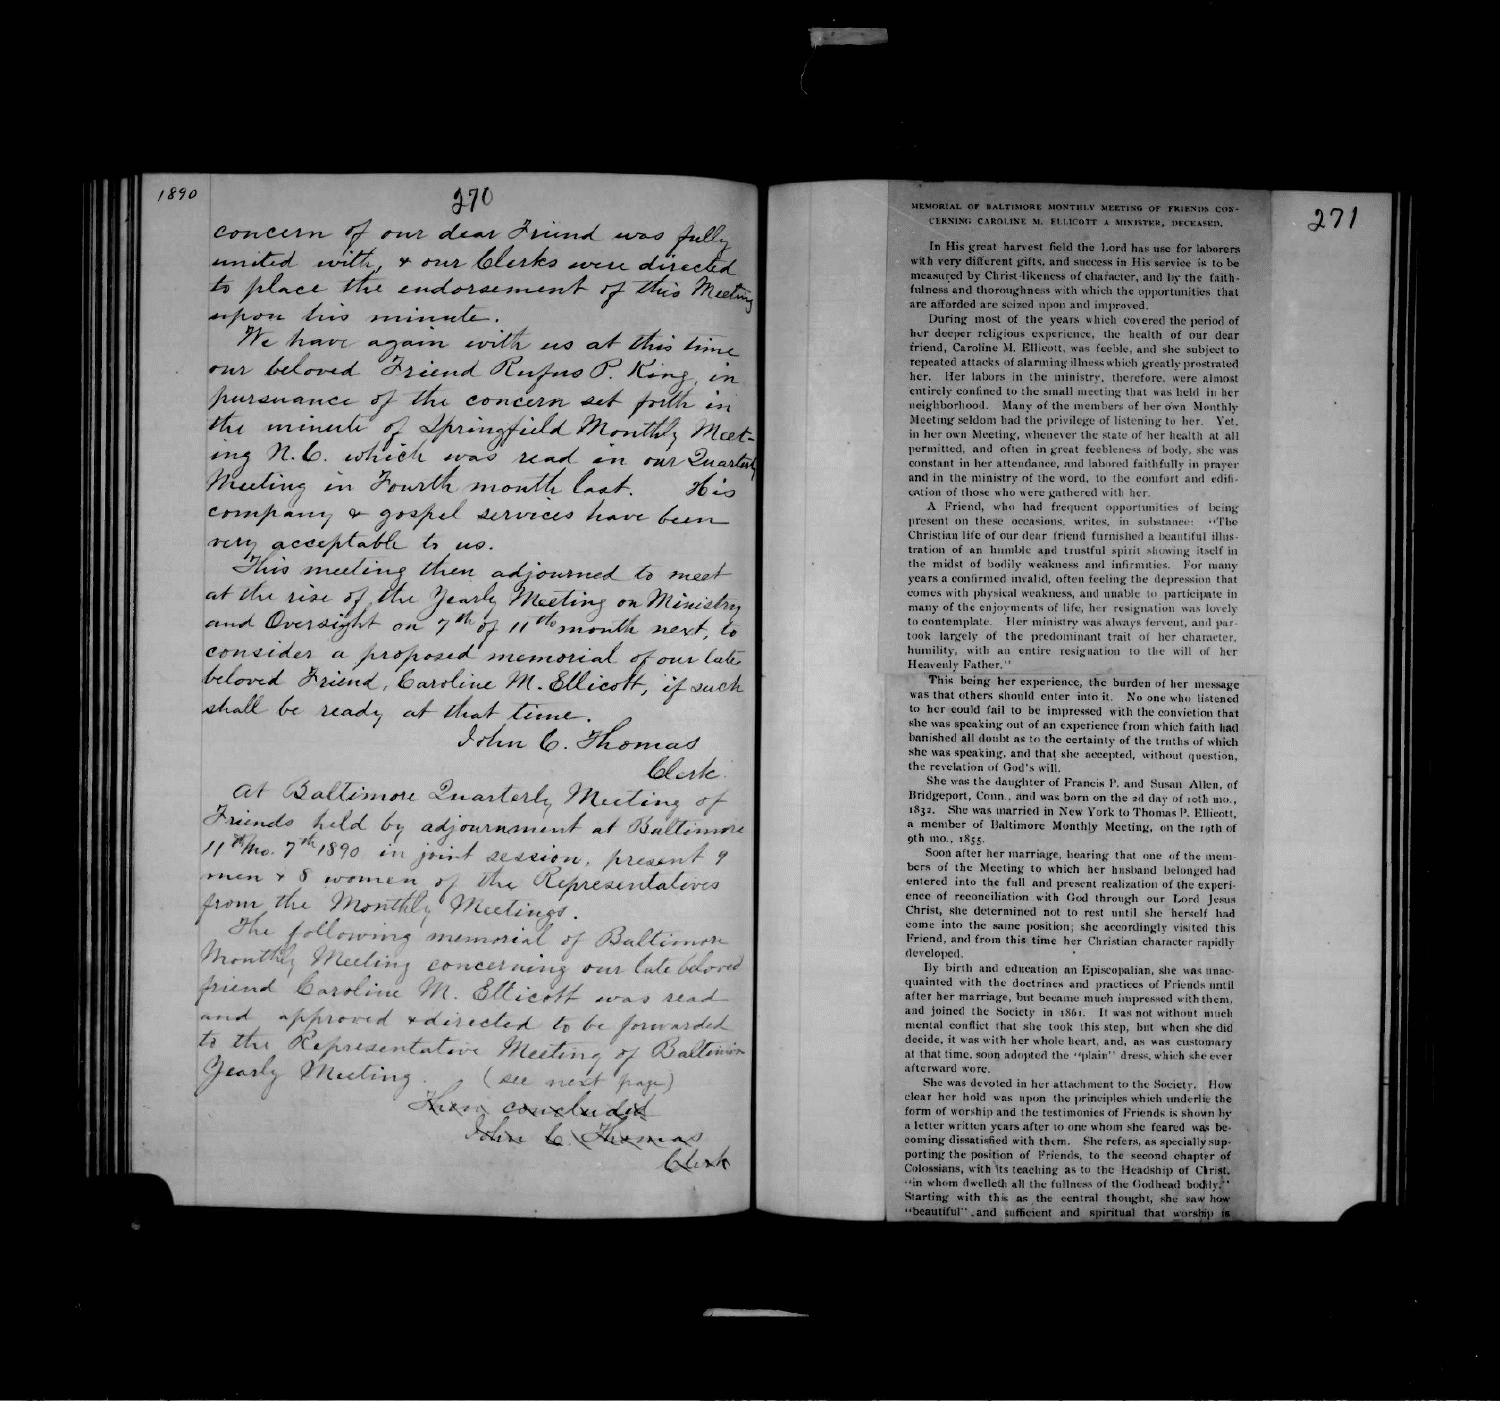 1890
270
concern of our dear Friend was fully
united with, & our Clerks were directed
to place the endorsement of this Meeting
upon his minute.
We have again with us at this time
our beloved Friend Rufus P. King, in
pursuance of the concern set forth in
the minute of Springfield Monthly Meet-
ing N.C. which was read in our Quarterly
Meeting in Fourth month last. His
company & gospel services have been
very acceptable to us.
This meeting then adjourned to meet
at the rise of the Yearly Meeting on Ministry
and Oversight on 7th of 11th month next, to
consider a proposed memorial of our late
beloved Friend, Caroline M. Ellicott, if such
shall be ready at that time.
John C. Thomas
Clerk.
At Baltimore Quarterly Meeting of
Friends held by adjournment at Baltimore
11th Mo. 7th 1890 in joint session, present 9
men & 8 women of the Representatives
from the Monthly Meetings.
The following memorial of Baltimore
Monthly Meeting concerning our late beloved
friend Caroline M. Ellicott was read
and approved & directed to be forwarded
to the Representative Meeting of Baltimore
Yearly Meeting. (see next page)
Then concluded
John C. Thomas
Clerk
271
MEMORIAL OF BALTIMORE MONTHLY MEETING OF FRIENDS CON-
CERNING CAROLINE M. ELLICOTT A MINISTER, DECEASED.
In His great harvest field the Lord has use for laborers
with very different gifts, and success in His service is to be
measured by Christ-likeness of character, and by the faith-
fulness and thoroughness with which the opportunities that
are afforded are seized upon and improved.
During most of the years which covered the period of
her deeper religious experience, the health of our dear
friend, Caroline M. Ellicott, was feeble, and she subject to
repeated attacks of alarming illness which greatly prostrated
her. Her labors in the ministry, therefore, were almost
entirely confined to the small meeting that was held in her
neighborhood. Many of the members of her own Monthly
Meeting seldom had the privilege of listening to her. Yet,
in her own Meeting, whenever the state of her health at all
permitted, and often in great feebleness of body, she was
constant in her attendance, and labored faithfully in prayer
and in the ministry of the word, to the comfort and edifi-
cation of those who were gathered with her.
A Friend, who had frequent opportunities of being
present on these occasions, writes, in substance: "The
Christian life of our dear friend furnished a beautiful illus-
tration of an humble and trustful spirit showing itself in
the midst of bodily weakness and infirmities. For many
years a confirmed invalid, often feeling the depression that
comes with physical weakness, and unable to participate in
many of the enjoyments of life, her resignation was lovely
to contemplate. Her ministry was always fervent, and par-
took largely of the predominant trait of her character,
humility, with an entire resignation to the will of her
Heavenly Father."
This being her experience, the burden of her message
was that others should enter into it. No one who listened
to her could fail to be impressed with the conviction that
she was speaking out of an experience from which faith had
banished all doubt as to the certainty of the truths of which
she was speaking, and that she accepted, without question,
the revelation of God's will.
She was the daughter of Francis P. and Susan Allen, of
Bridgeport, Conn., and was born on the 2d day of 10th mo.,
1832. She was married in New York to Thomas P. Ellicott,
a member of Baltimore Monthly Meeting, on the 19th of
9th mo., 1855.
Soon after her marriage, hearing that one of the mem-
bers of the Meeting to which her husband belonged had
entered into the full and present realization of the experi-
ence of reconciliation with God through our Lord Jesus
Christ, she determined not to rest until she herself had
come into the same position; she accordingly visited this
Friend, and from this time her Christian character rapidly
developed.
By birth and education an Episcopalian, she was unac-
quainted with the doctrines and practices of Friends until
after her marriage, but became much impressed with them,
and joined the Society in 1861. It was not without much
mental conflict that she took this step, but when she did
decide, it was with her whole heart, and, as was customary
at that time, soon adopted the "plain" dress, which she ever
afterward wore.
She was devoted in her attachment to the Society. How
clear her hold was upon the principles which underlie the
form of worship and the testimonies of Friends is shown by
a letter written years after to one whom she feared was be-
coming dissatisfied with them. She refers, as specially sup-
porting the position of Friends, to the second chapter of
Colossians, with its teaching as to the Headship of Christ,
"in whom dwelleth all the fullness of the Godhead bodily."
Starting with this as the central thought, she saw how
"beautiful" and sufficient and spiritual that worship is